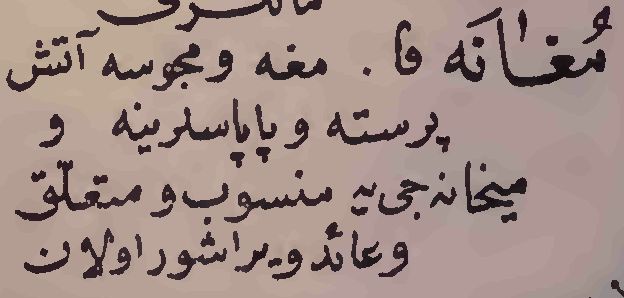 مُغَانَه فا . مغه و مجوسه آتش
پرسته و پاپاسلرينه و
ميخانه‌جى‌يه منسوب و متعلّق
و عائد و يراشور اولان